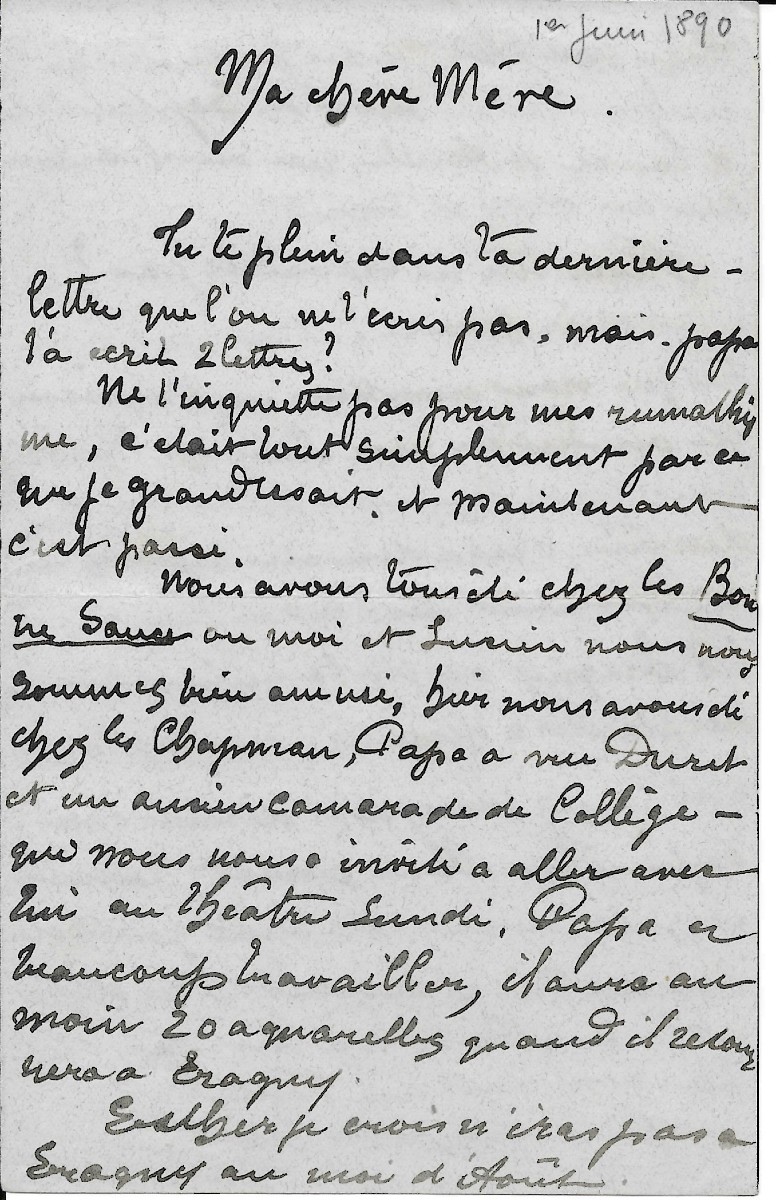 1er Juin 1890
Ma chère Mère.
Tu te plein dans ta dernière -
lettre que l'on ne t'ecris pas. mais. papa
t'a ecrit 2 lettres?
Ne t'inquiette pas pour mes rumathis
me, c'était tout simplement par ce
que je grandissait. et maintenant
c'est passé.
Nous avons tous été chez les Bon
ne Sauce ou moi et Lucien nous nous
sommes bien amusé, hier nous avons été
chez les Chapman, Papa a vue Duret
et un ancien camarade de Collège -
qui nous nous a invité a aller avec
lui au théâtre Lundi, Papa a
beaucoup travailler, il aura au
moin 20 aquarelles quand il retour
nera a Eragny.
Esther je crois n'iras pas a
Eragny au moi d'Août.